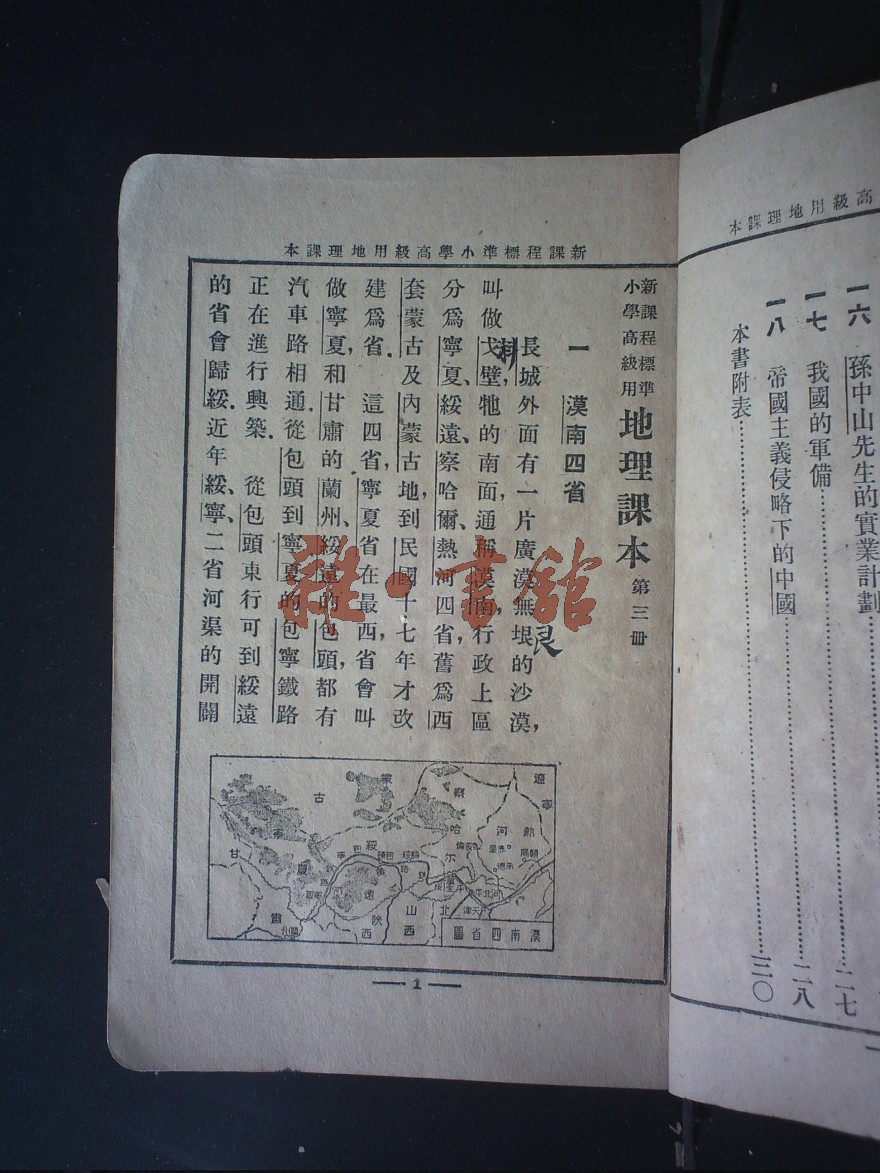 本課理地用級高
一六 孫中山先生的實業計劃……二七
一七 我國的軍備……二八
一八 帝國主義侵略下的中國……
本書附表……三〇
本課理地用級高學小準標程課新
新課程標準
小學高級用
地理課本 第三册
一 漠南四省
長城外面有一片廣漠無垠的沙漠,
叫做戈壁,牠的南面,通稱漠南,行政上區
分爲寧夏、綏遠、察哈爾、熱河四省,舊爲西
套蒙古及內蒙古地,到民國十七年才改
建爲省. 這四省,寧夏省在最西,省會叫
做寧夏,和甘肅的蘭州、綏遠的包頭,都有
汽車路相通.從包頭到寧夏的包寧鐵路
正在進行興築. 從包頭東行可到綏遠
的省會歸綏.近年綏、寧、二省河渠的開闢
艮
遼寧
熱河
察哈爾
蒙古
綏遠
寧夏
甘肅
陝西
山西
河北
天津
承德
漠南四省圖
1
雜·書館